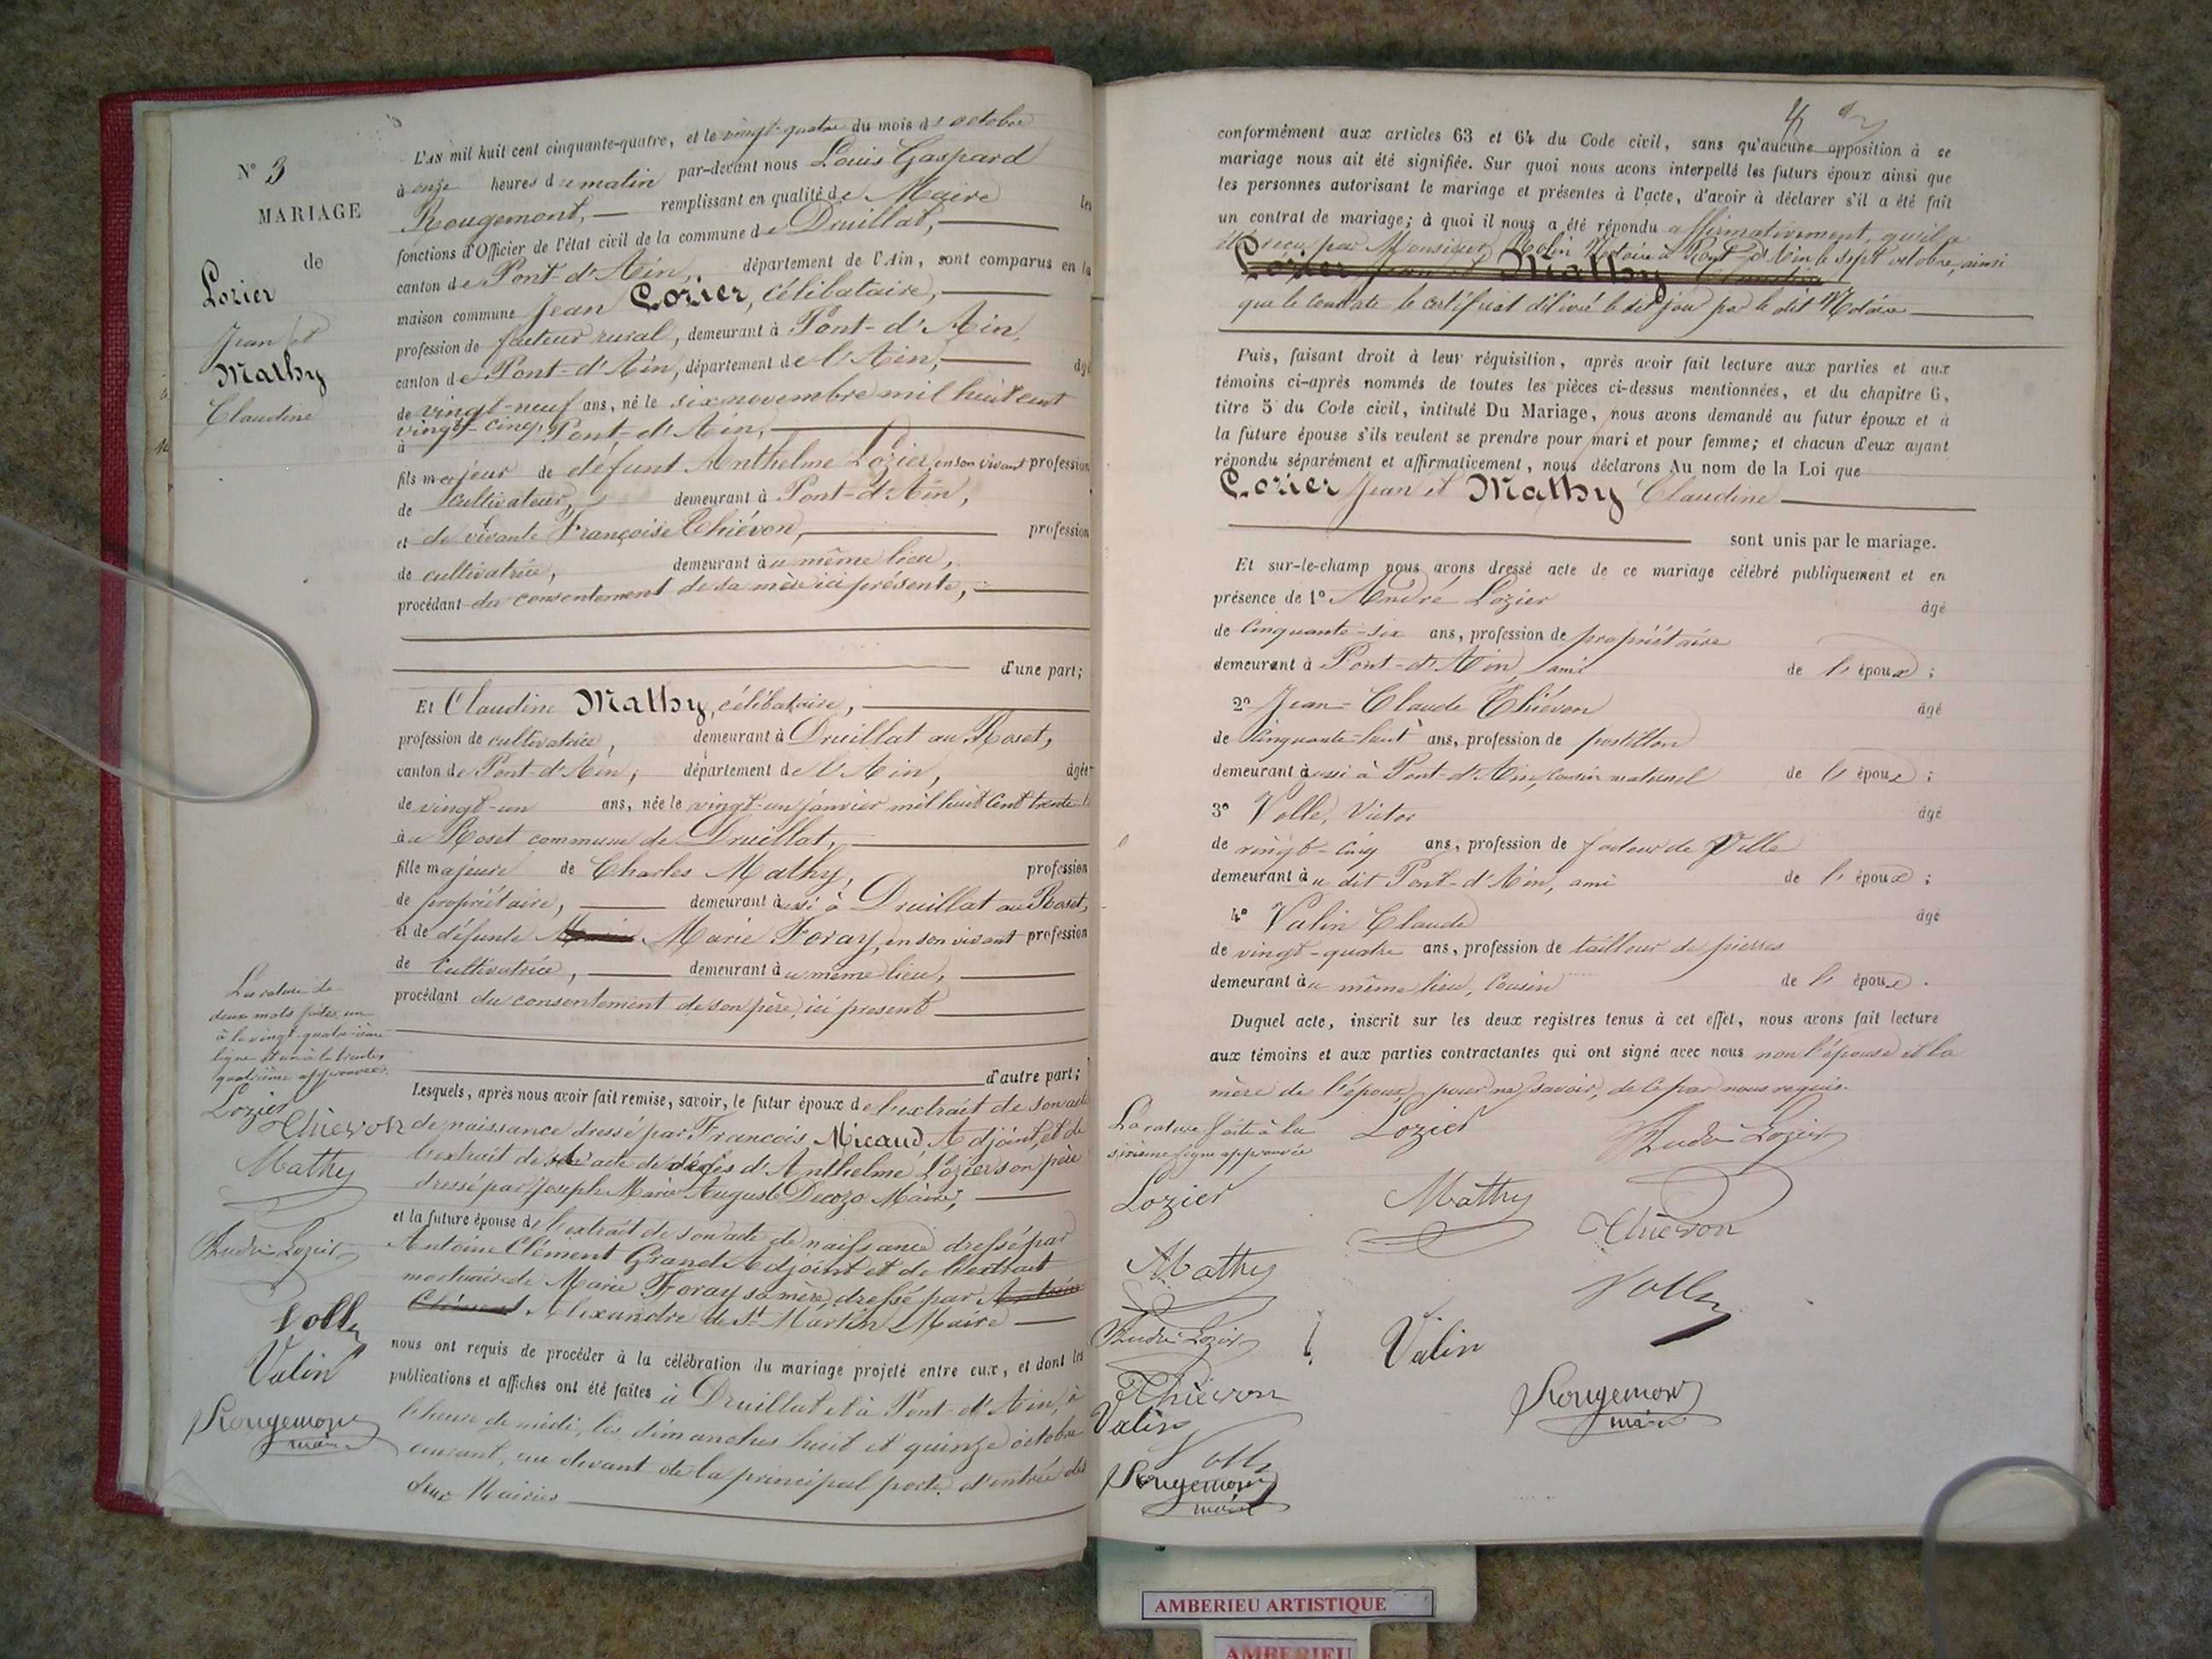 N° 3
MARIAGE
de
Lozier
Jean et
Mathy
Claudine
L'AN mil huit cent cinquante-quatre, et le vingt-quatre du mois d'octobre
à onze heures du matin par-devant nous Louis Gaspard
Rougemont, remplissant en qualité de Maire les
fonctions d'Officier de l'état civil de la commune de Druillat,
canton de Pont-d'Ain, département de l'Ain, sont comparus en la
maison commune Jean Lozier, célibataire,
profession de facteur rural, demeurant à Pont-d'Ain,
canton de Pont-d'Ain, département de l'Ain, âgé
de vingt-neuf ans, né le six novembre mil huit cent
vingt-cinq,
à Pont-d'Ain,
fils majeur de défunt Anthelme Lozier, en son vivant profession
de cultivateur, demeurant à Pont-d'Ain,
et de vivante Françoise Thiévon, profession
de cultivatrice, demeurant au même lieu,
procédant du consentement de sa mère ici présente,
d'une part;
Et Claudine Mathy, célibataire,
profession de cultivatrice, demeurant à Druillat au Roset,
canton de Pont-d'Ain, département de l'Ain, âgée
de vingt-un ans, née le vingt-un janvier mil huit cent trente
au Roset commune de Druillat,
fille majeure de Charles Mathy, profession
de propriétaire, demeurant aussi à Druillat au Roset,
et de défunte Marie Foray, en son vivant profession
de cultivatrice, demeurant au même lieu,
procédant du consentement de son père, ici présent
d'autre part;
La rature de
deux mots faites, un
à la vingt-quatrième
ligne et un à la trente
quatrième approuvée.
Lozier
Thievon
Mathy
André Lozier
Volle
Valin
Rougemont
maire
Lesquels, après nous avoir fait remise, savoir, le futur époux de l'extrait de son acte
de naissance dressé par François Micaud, Adjoint, et de
l'extrait de l'acte de décès d'Anthelme Lozier son père
dressé par Joseph Marie Auguste Decozo Maire,
et la future épouse de l'extrait de son acte de naissance dressé par
Antoine Clément Grand Adjoint et de l'extrait
mortuaire de Marie Foray sa mère, dressé par Antoine
Clément Alexandre de St Martin Maire
nous ont requis de procéder à la célébration du mariage projeté entre eux, et dont les
publications et affiches ont été faites à Druillat et à Pont-d'Ain, à
l'heure de midi, les dimanches huit et quinze octobre
courant, au devant de la principal porte d'entrée des
deux Mairies
4
conformément aux articles 63 et 64 du Code civil, sans qu'aucune opposition à ce
mariage nous ait été signifiée. Sur quoi nous avons interpellé les futurs époux ainsi que
les personnes autorisant le mariage et présentes à l'acte, d'avoir à déclarer s'il a été fait
un contrat de mariage; à quoi il nous a été répondu affirmativement, qu'il a
été reçu par Monsieur Rolin Notaire à Pont-d'Ain le sept octobre, ainsi
Lozier Jean et Mathy Claudine
que le constate le certificat délivré le dit jour par le dit Notaire
Puis, faisant droit à leur réquisition, après avoir fait lecture aux parties et aux
témoins ci-après nommés de toutes les pièces ci-dessus mentionnées, et du chapitre 6,
titre 5 du Code civil, intitulé Du Mariage, nous avons demandé au futur époux et à
la future épouse s'ils veulent se prendre pour mari et pour femme; et chacun d'eux ayant
répondu séparément et affirmativement, nous déclarons Au nom de la Loi que
Lozier Jean et Mathy Claudine
sont unis par le mariage.
Et sur-le-champ nous avons dressé acte de ce mariage célébré publiquement et en
présence de 1° André Lozier âgé
de cinquante-six ans, profession de propriétaire
demeurant à Pont-d'Ain, ami de l'époux;
2° Jean-Claude Thiévon âgé
de cinquante-huit ans, profession de postillon
demeurant aussi à Pont-d'Ain, cousin maternel de l'époux;
3° Volle, Victor âgé
de vingt-cinq ans, profession de facteur de Ville
demeurant au dit Pont-d'Ain, ami de l'époux;
4° Valin Claude âgé
de vingt-quatre ans, profession de tailleur de pierres
demeurant au même lieu, cousin de l'époux.
Duquel acte, inscrit sur les deux registres tenus à cet effet, nous avons fait lecture
aux témoins et aux parties contractantes qui ont signé avec nous non l'épouse et la
mère de l'époux, pour ne savoir, de ce par nous requis.
La rature faite à la
sixième ligne approuvée
Lozier
André Lozier
Lozier
Mathy
Thievon
Mathy
Volle
André Lozier
Valin
Thievon
Rougemont
maire
Valin
Volle
Rougemont
maire
AMBERIEU ARTISTIQUE
AMBERIEU